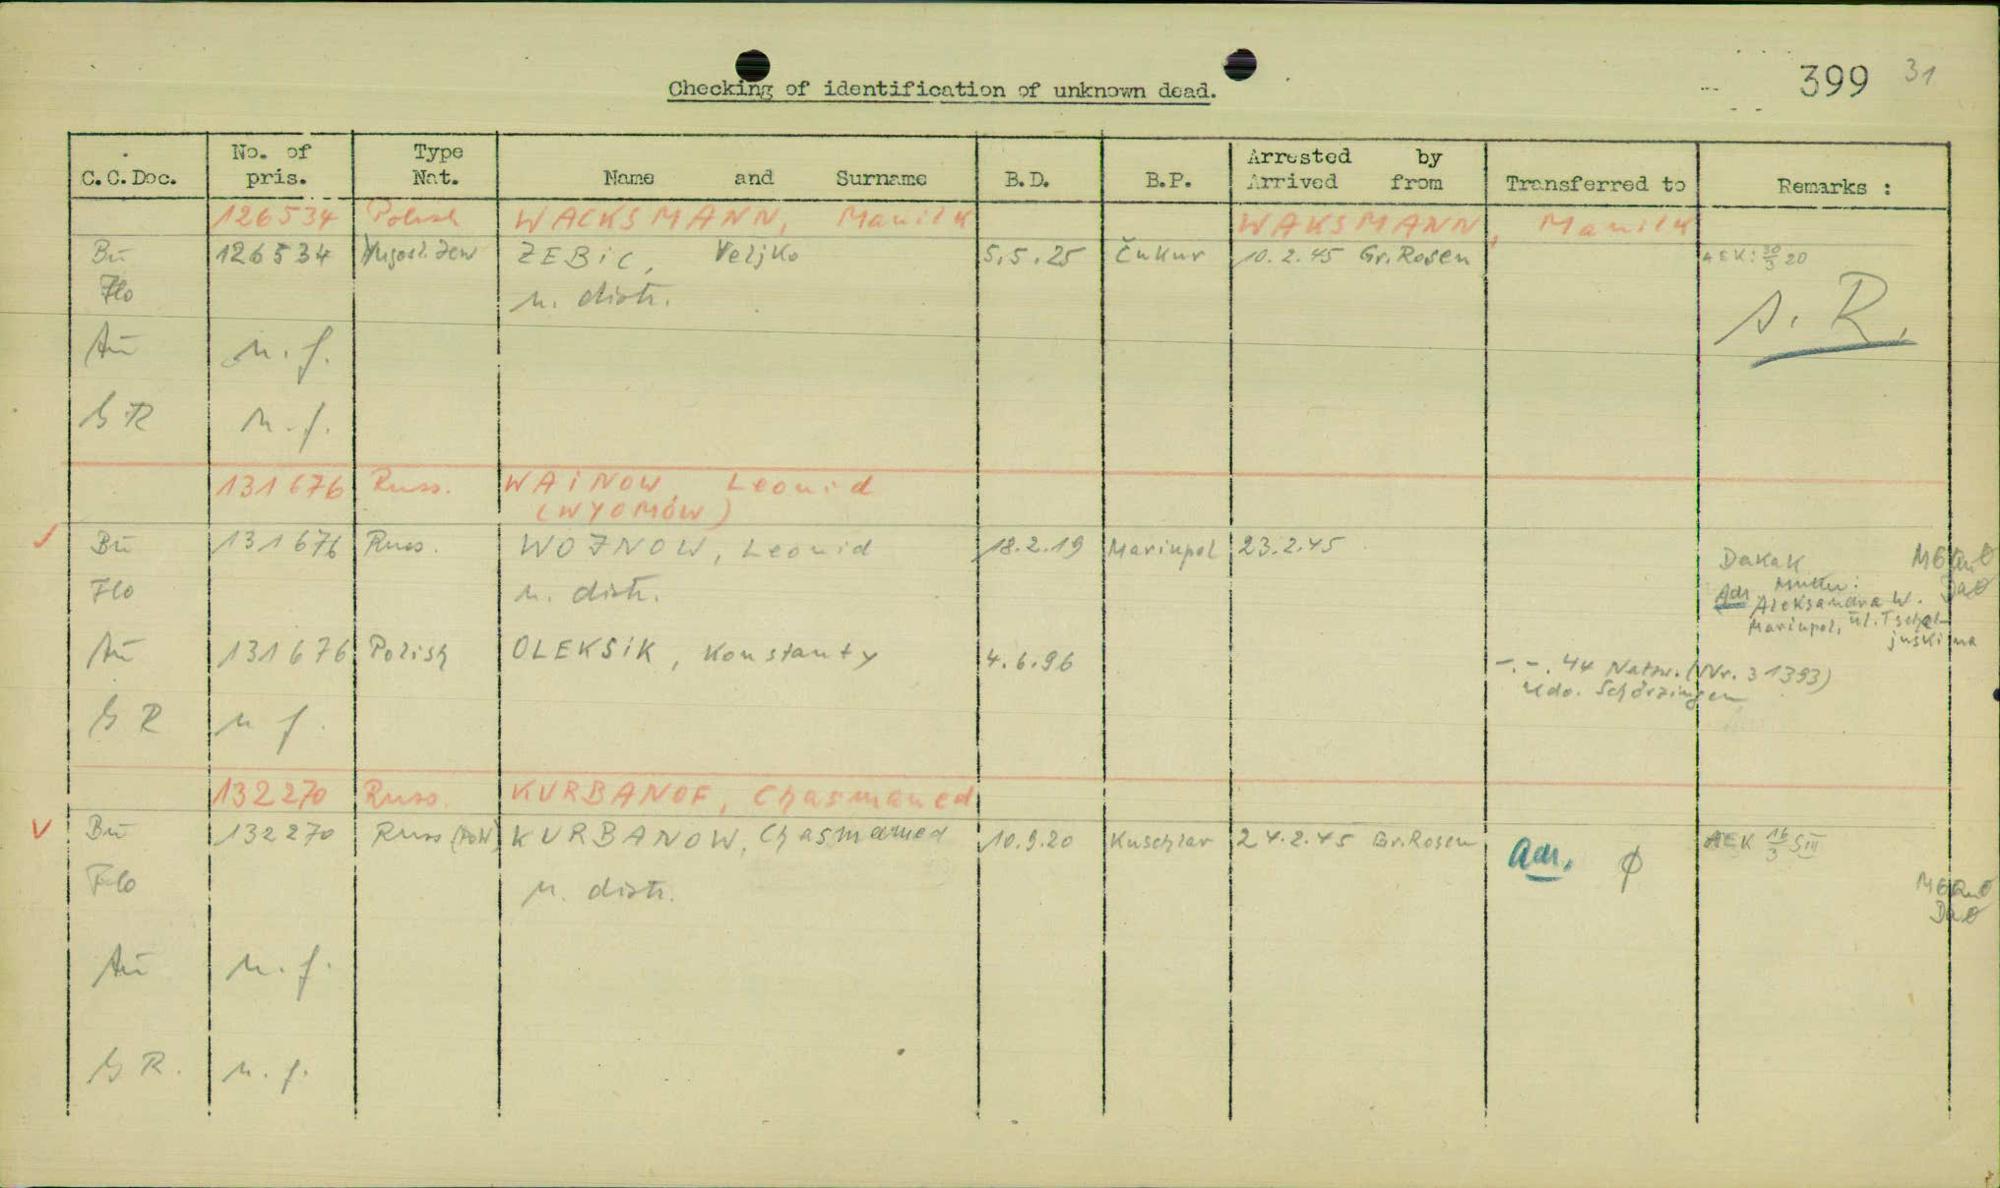 399 31
Checking of identification of unknown dead.
C.C.Doc. No. of pris. Type Nat. Name and Surname B.D. B.P. Arrested by Arrived from Transferred to Remarks :
126534 Polish WACKSMANN, Manilk WAKSMANN, Manilk
Bū 126534 Yugosl. Jew ZEBiC, Veljko 5.5.25 Čukur 10.2.45 Gr.Rosen AEK: 30/3 20
Flo n. distr. s. R.
Aū n. f.
GR n. f.
131676 Russ. WAiNOW, Leonid
(WYOMÓW)
Bū 131676 Russ. WOJNOW, Leonid 18.2.19 Mariupol 23.2.45 Dakak
Flo n. distr. Adr Mutter:
Aleksandra W.
Mariupol, ul. Tschel-
juskina
Aū 131676 Polish OLEKSiK, Konstanty 4.6.96 -.-. 44 Natzw. (Nr. 31393)
Kdo. Schörzingen
GR n f.
132270 Russ. KURBANOF, Chasmamed
Bū 132270 Russ (PoW) KURBANOW, Chasmamed 10.9.20 Kuschlar 24.2.45 Gr.Rosen Adr. ϕ AEK 16/3 SIII
Flo n. distr.
Aū n. f.
GR. n. f.